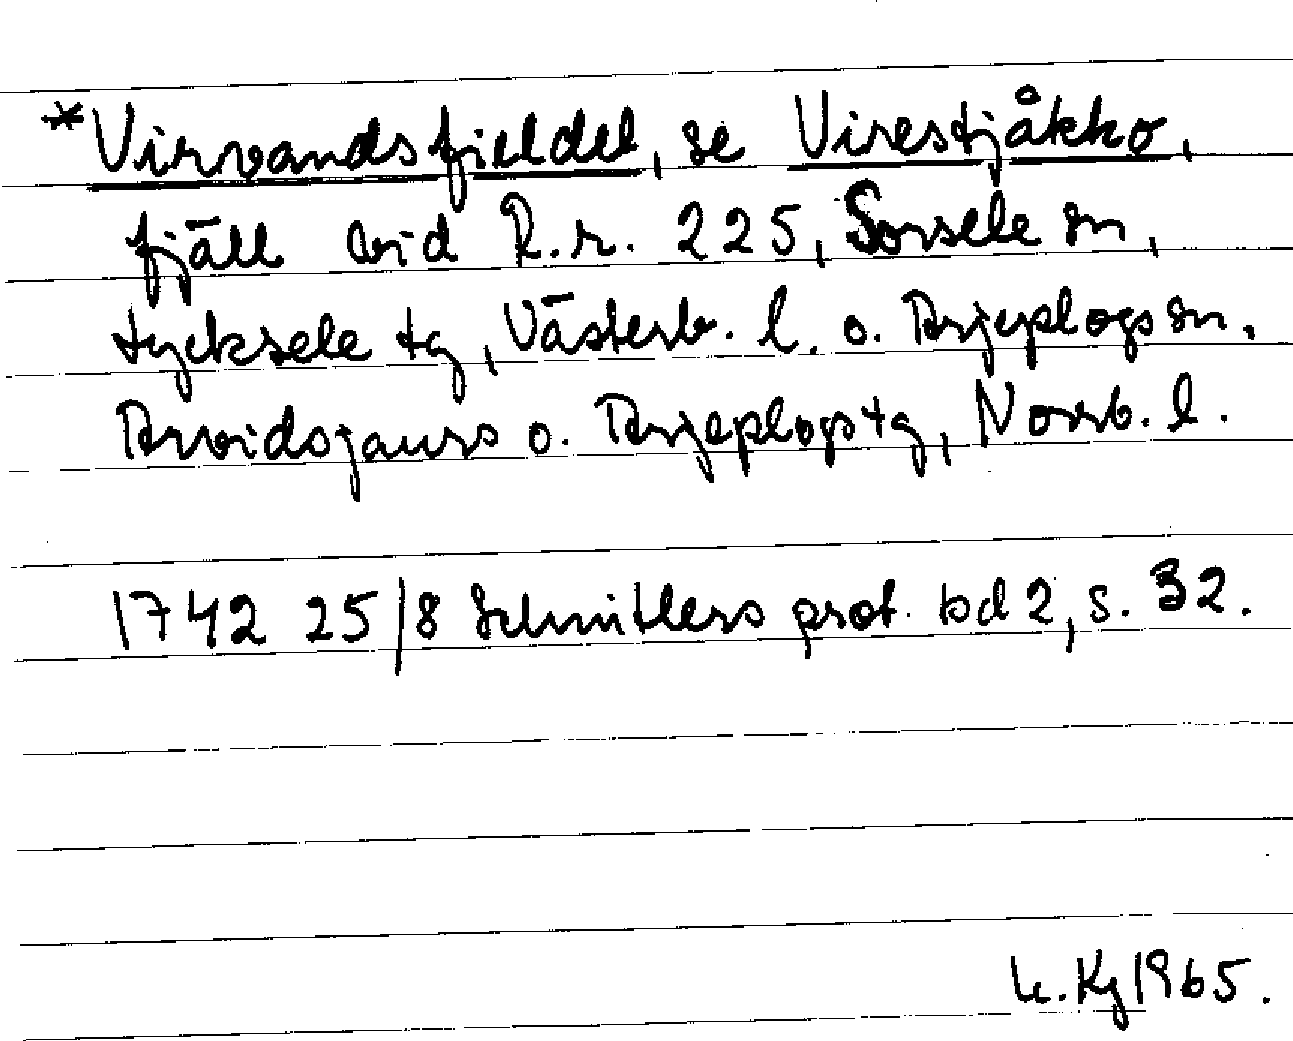 *Virvandsfjeldet, se Virestjåkko,
fjäll vid R.r. 225, Sorsele sn,
Lycksele tg, Västerb. l. o. Arjeplogs sn,
Arvidsjaurs o. Arjeplogs tg, Norrb. l.
1742 25/8 Schnitlers prot. bd 2, s. 32.
K. Kj 1965.